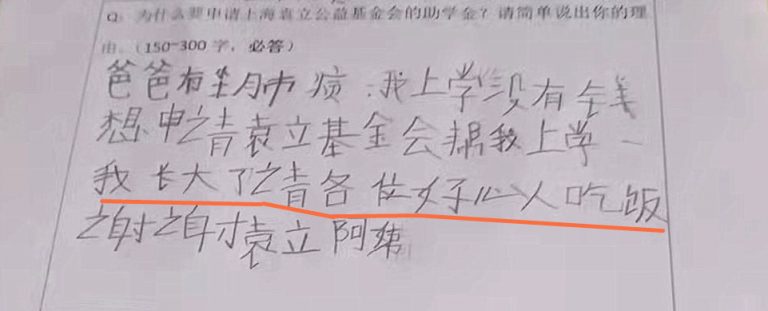 Q: 为什么要申请上海袁立公益基金会的助学金? 请简单说出你的理
由。(150-300 字, 必答)
爸爸有尘肺病.我上学没有钱
想申请袁立基金会帮我上学
我长大了请各位好心人吃饭
谢谢袁立阿姨